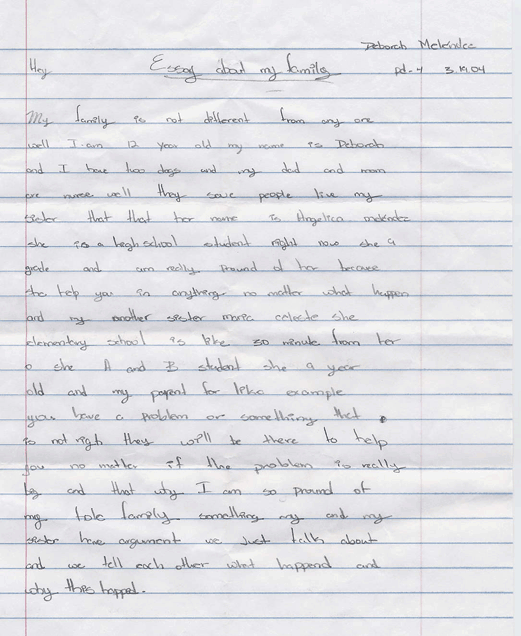 Deborah Melendez
Hey Essay about my family pd-4 3.19.04
My family is not different from any one
well I am 12 year old my name is Deborah
and I have two dogs and my dad and mom
are nurse well they save people live my
sister that that her name is Angelica melendez
she is a high school student right now she 9
grade and am really pround of her because
she help you in anything no matter what happen
and my another sister maria celeste she
elementary school is like 30 minute from her
she A and B student she 9 year
old and my parent for like example
you have a problem or something that
is not righ they will be there to help
you no matter if the problem is really
big and that why I am so pround of
my hole family something my and my
sister have argument we just talk about
and we tell each other what happend and
why this happed.